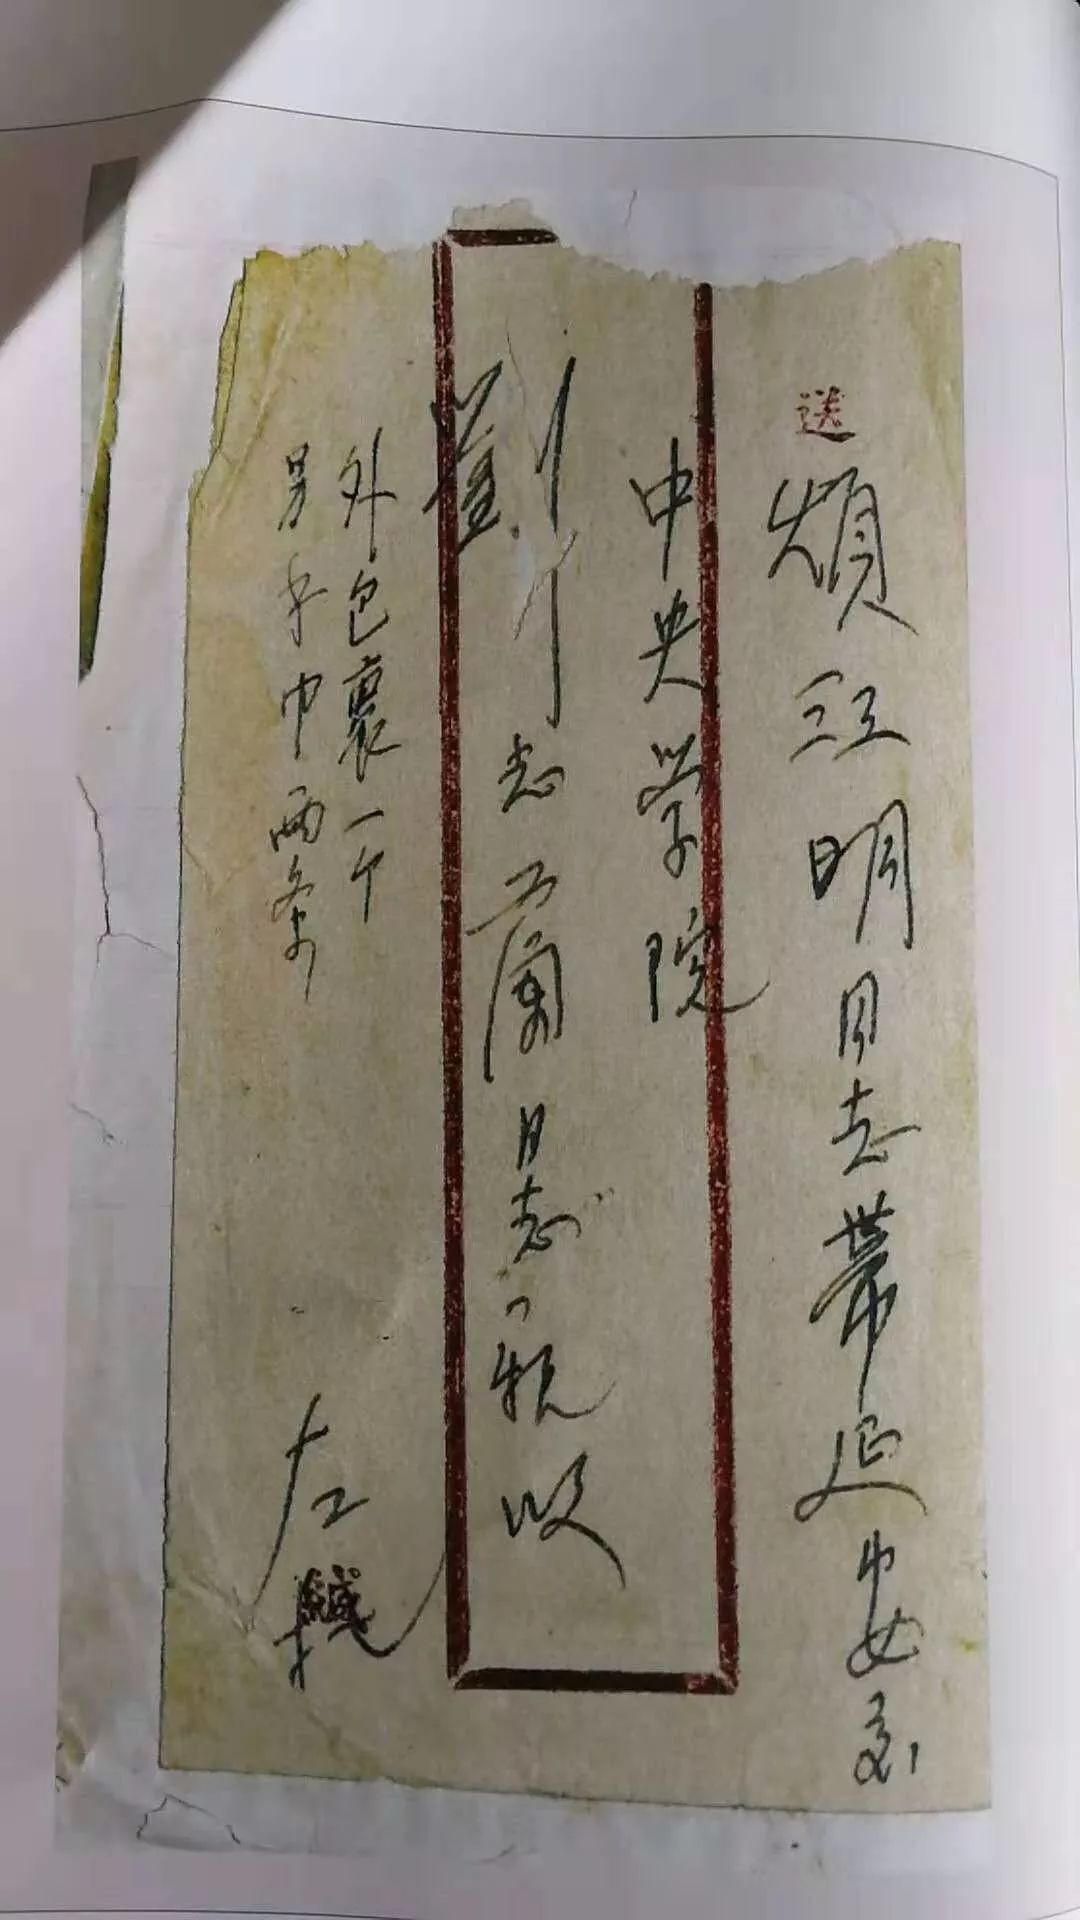 送
煩江明同志帶延安交
中央学院
劉志蘭同志親收
外包裹一个
另手巾两条
左緘